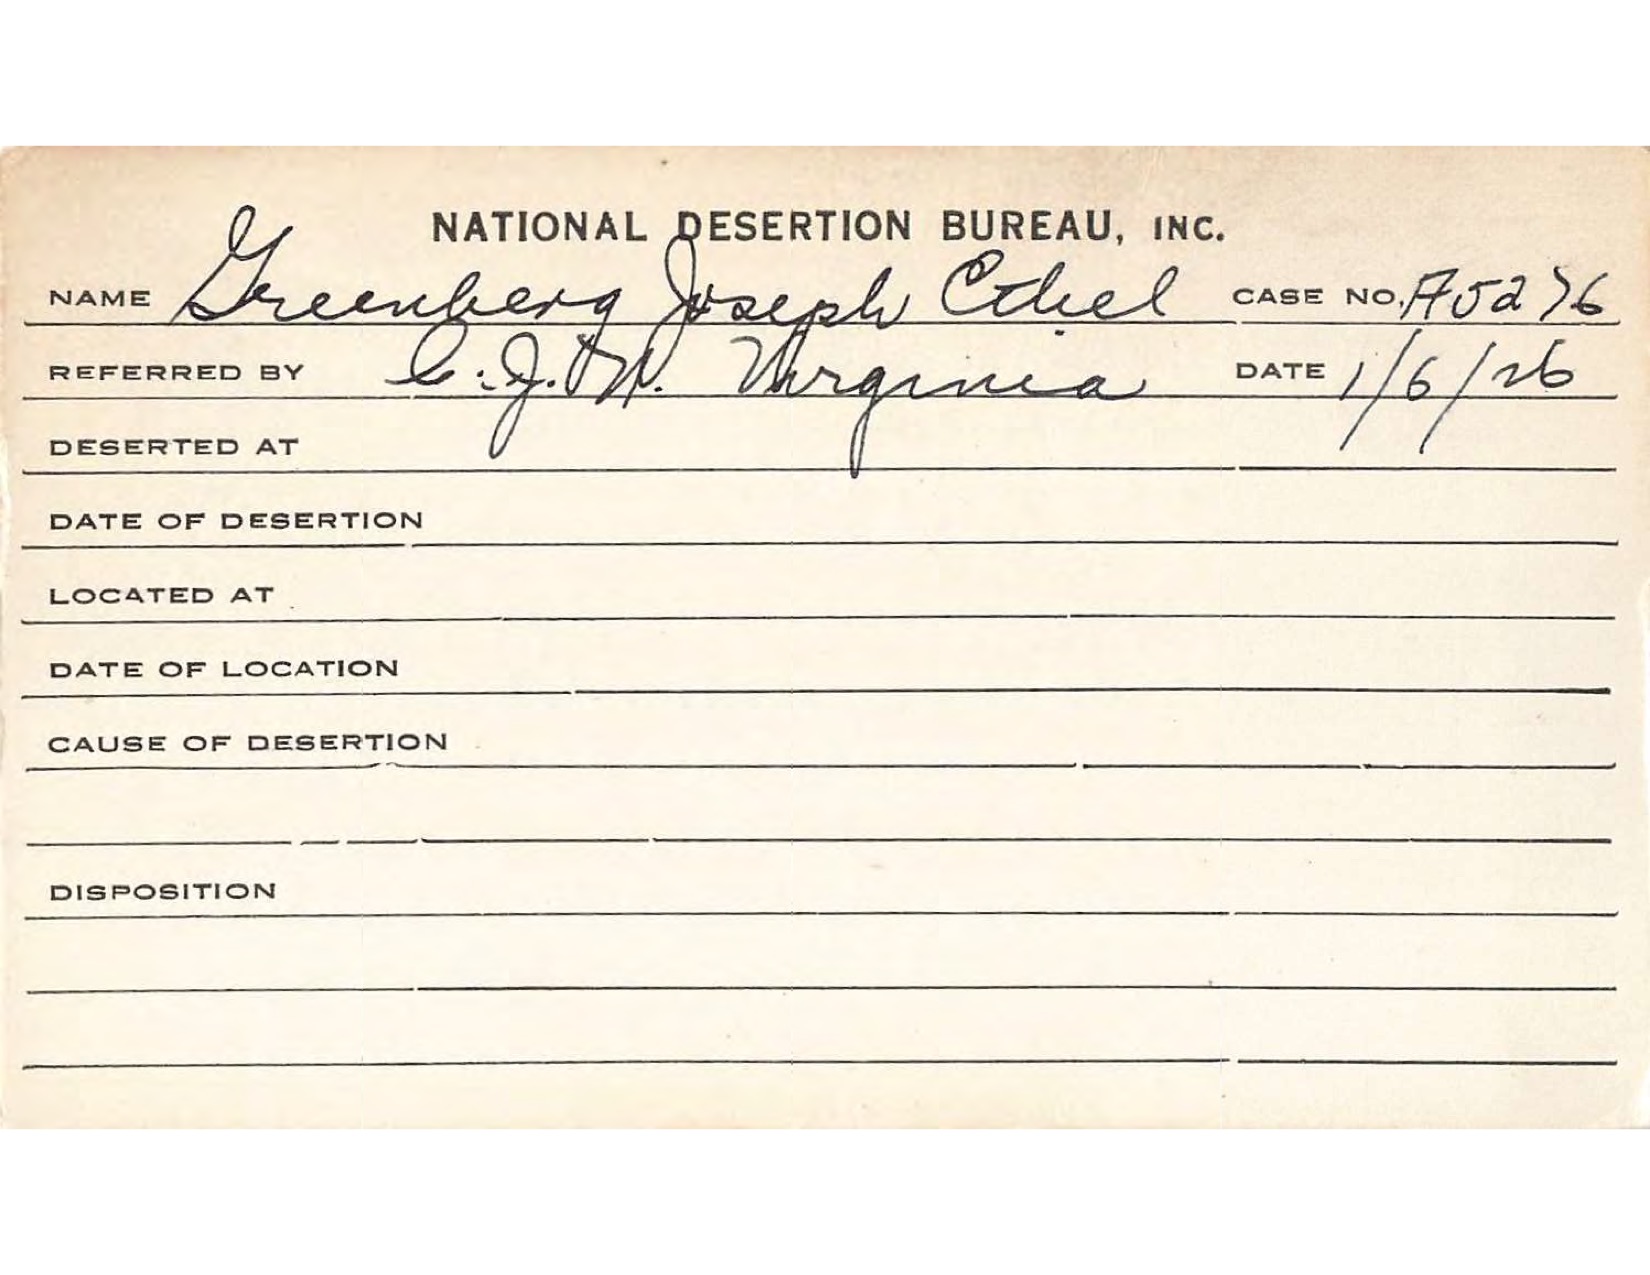 NATIONAL DESERTION BUREAU, INC.
NAME Greenberg Joseph Ethel CASE NO. A5276
REFERRED BY C.J.W. Virginia DATE 1/6/26
DESERTED AT
DATE OF DESERTION
LOCATED AT
DATE OF LOCATION
CAUSE OF DESERTION
DISPOSITION